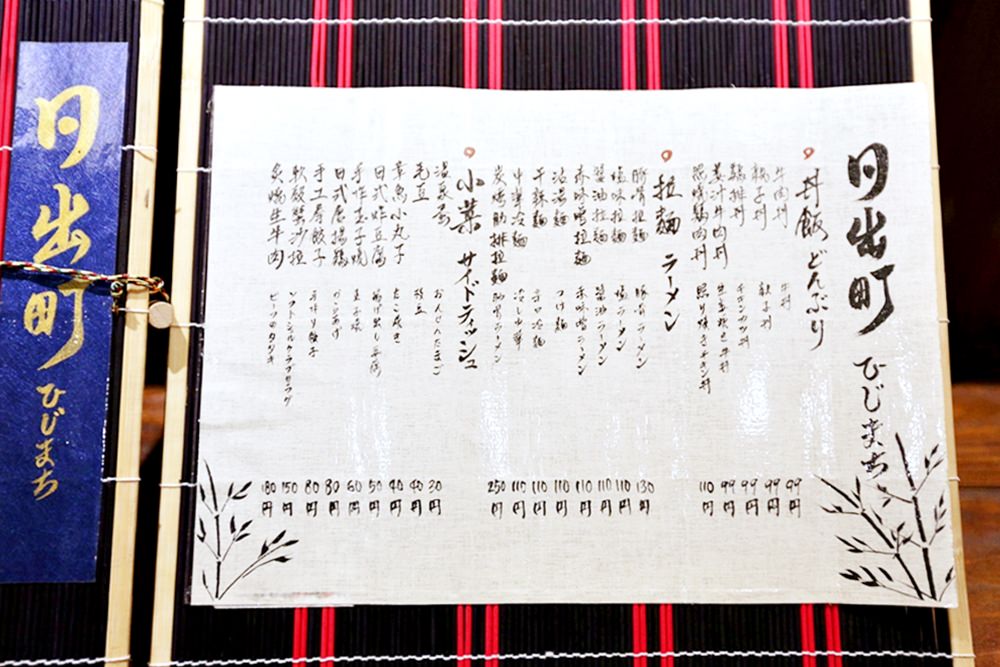 日出町 ひじまち
日出町 ひじまち
丼飯 どんぶり
牛肉丼 牛丼 99円
親子丼 親子丼 99円
雞排丼 チキンカツ丼 99円
薑汁牛肉丼 牛生姜焼き丼 99円
照燒雞肉丼 照り焼きチキン丼 110円
拉麵 ラーメン
豚骨拉麵 豚骨ラーメン 130円
塩味拉麵 塩ラーメン 110円
醬油拉麵 醤油ラーメン 110円
赤味噌拉麵 赤味噌ラーメン 110円
沾湯麵 つけ麺 110円
干辣麵 110円
中華冷麵 冷し中華 110円
炭燒肋排拉麵 ラーメン 250円
小菜 サイドディッシュ
溫泉蛋 おんせんたまご 30円
毛豆 枝豆 40円
章魚小丸子 たこ焼き 40円
日式炸豆腐 揚げ出し豆腐 50円
手作玉子燒 玉子焼 60円
日式唐揚雞 からあげ 80円
手工唐餃子 手作り餃子 80円
軟殼蟹沙拉 ソフトシェルクラブサラダ 150円
炙燒生牛肉 ビーフのタタキ 180円